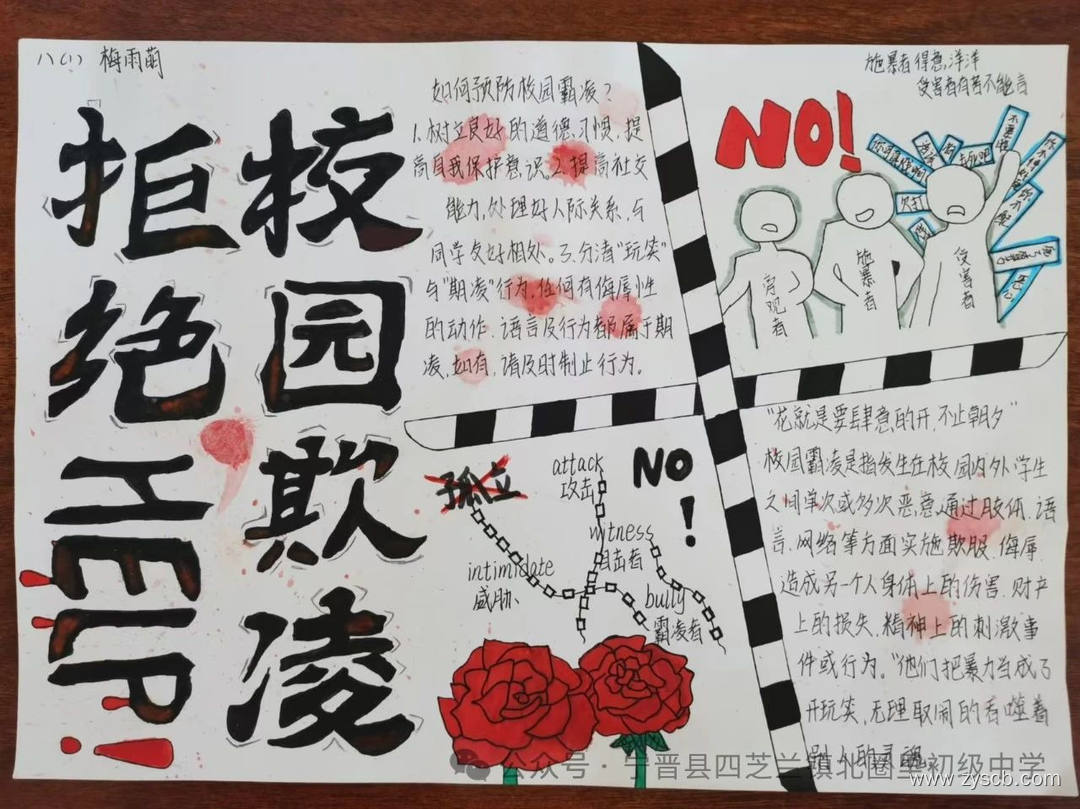 八(1) 梅雨萌
拒绝
校园欺凌
HELP!
如何预防校园霸凌?
1.树立良好的道德、习惯,提
高自我保护意识。2.提高社交
能力,处理好人际关系,与
同学友好相处。3.分清"玩笑"
与"期凌"行为,任何有侮辱性
的动作、语言及行为都属于期
凌,如有,请及时制止行为。
施暴者得意洋洋
受害者有苦不能言
NO!
旁观者
施暴者
受害者
"花就是要肆意的开,不止朝夕"
校园霸凌是指发生在校园内外学生
之间单次或多次恶意通过肢体、语
言、网络等方面实施欺服、侮辱
造成另一个人身体上的伤害、财产
上的损失、精神上的刺激事
件或行为。"他们把暴力当成了
开玩笑,无理取闹的吞噬着
别人的灵魂
孤立
attack
攻击
NO
!
witness
目击者
intimidate
威胁
bully
霸凌者
公众号·宁晋县四芝兰镇北圈里初级中学
www.zyscb.com